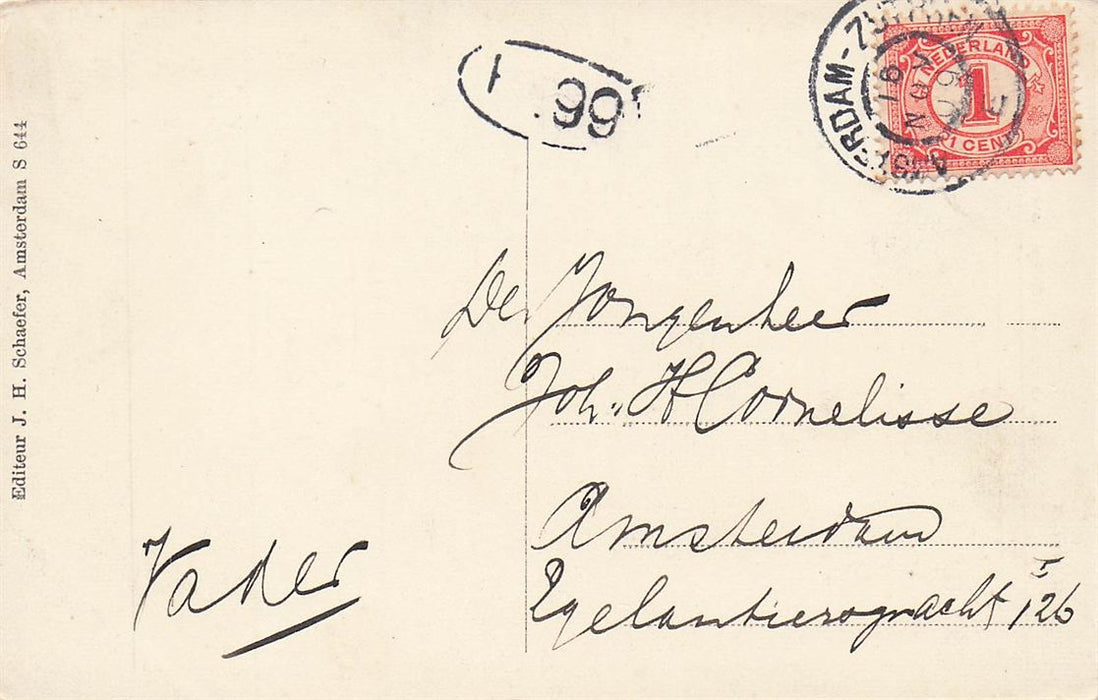 Editeur J. H. Schaefer, Amsterdam S 644
1 99.
AMSTERDAM-ZUTPHEN
18 NOV 09
NEDERLAND
1
1 CENT
De Jongenheer
Joh. H Cornelisse
Amsterdam
Egelantiersgracht 126 I
Vader